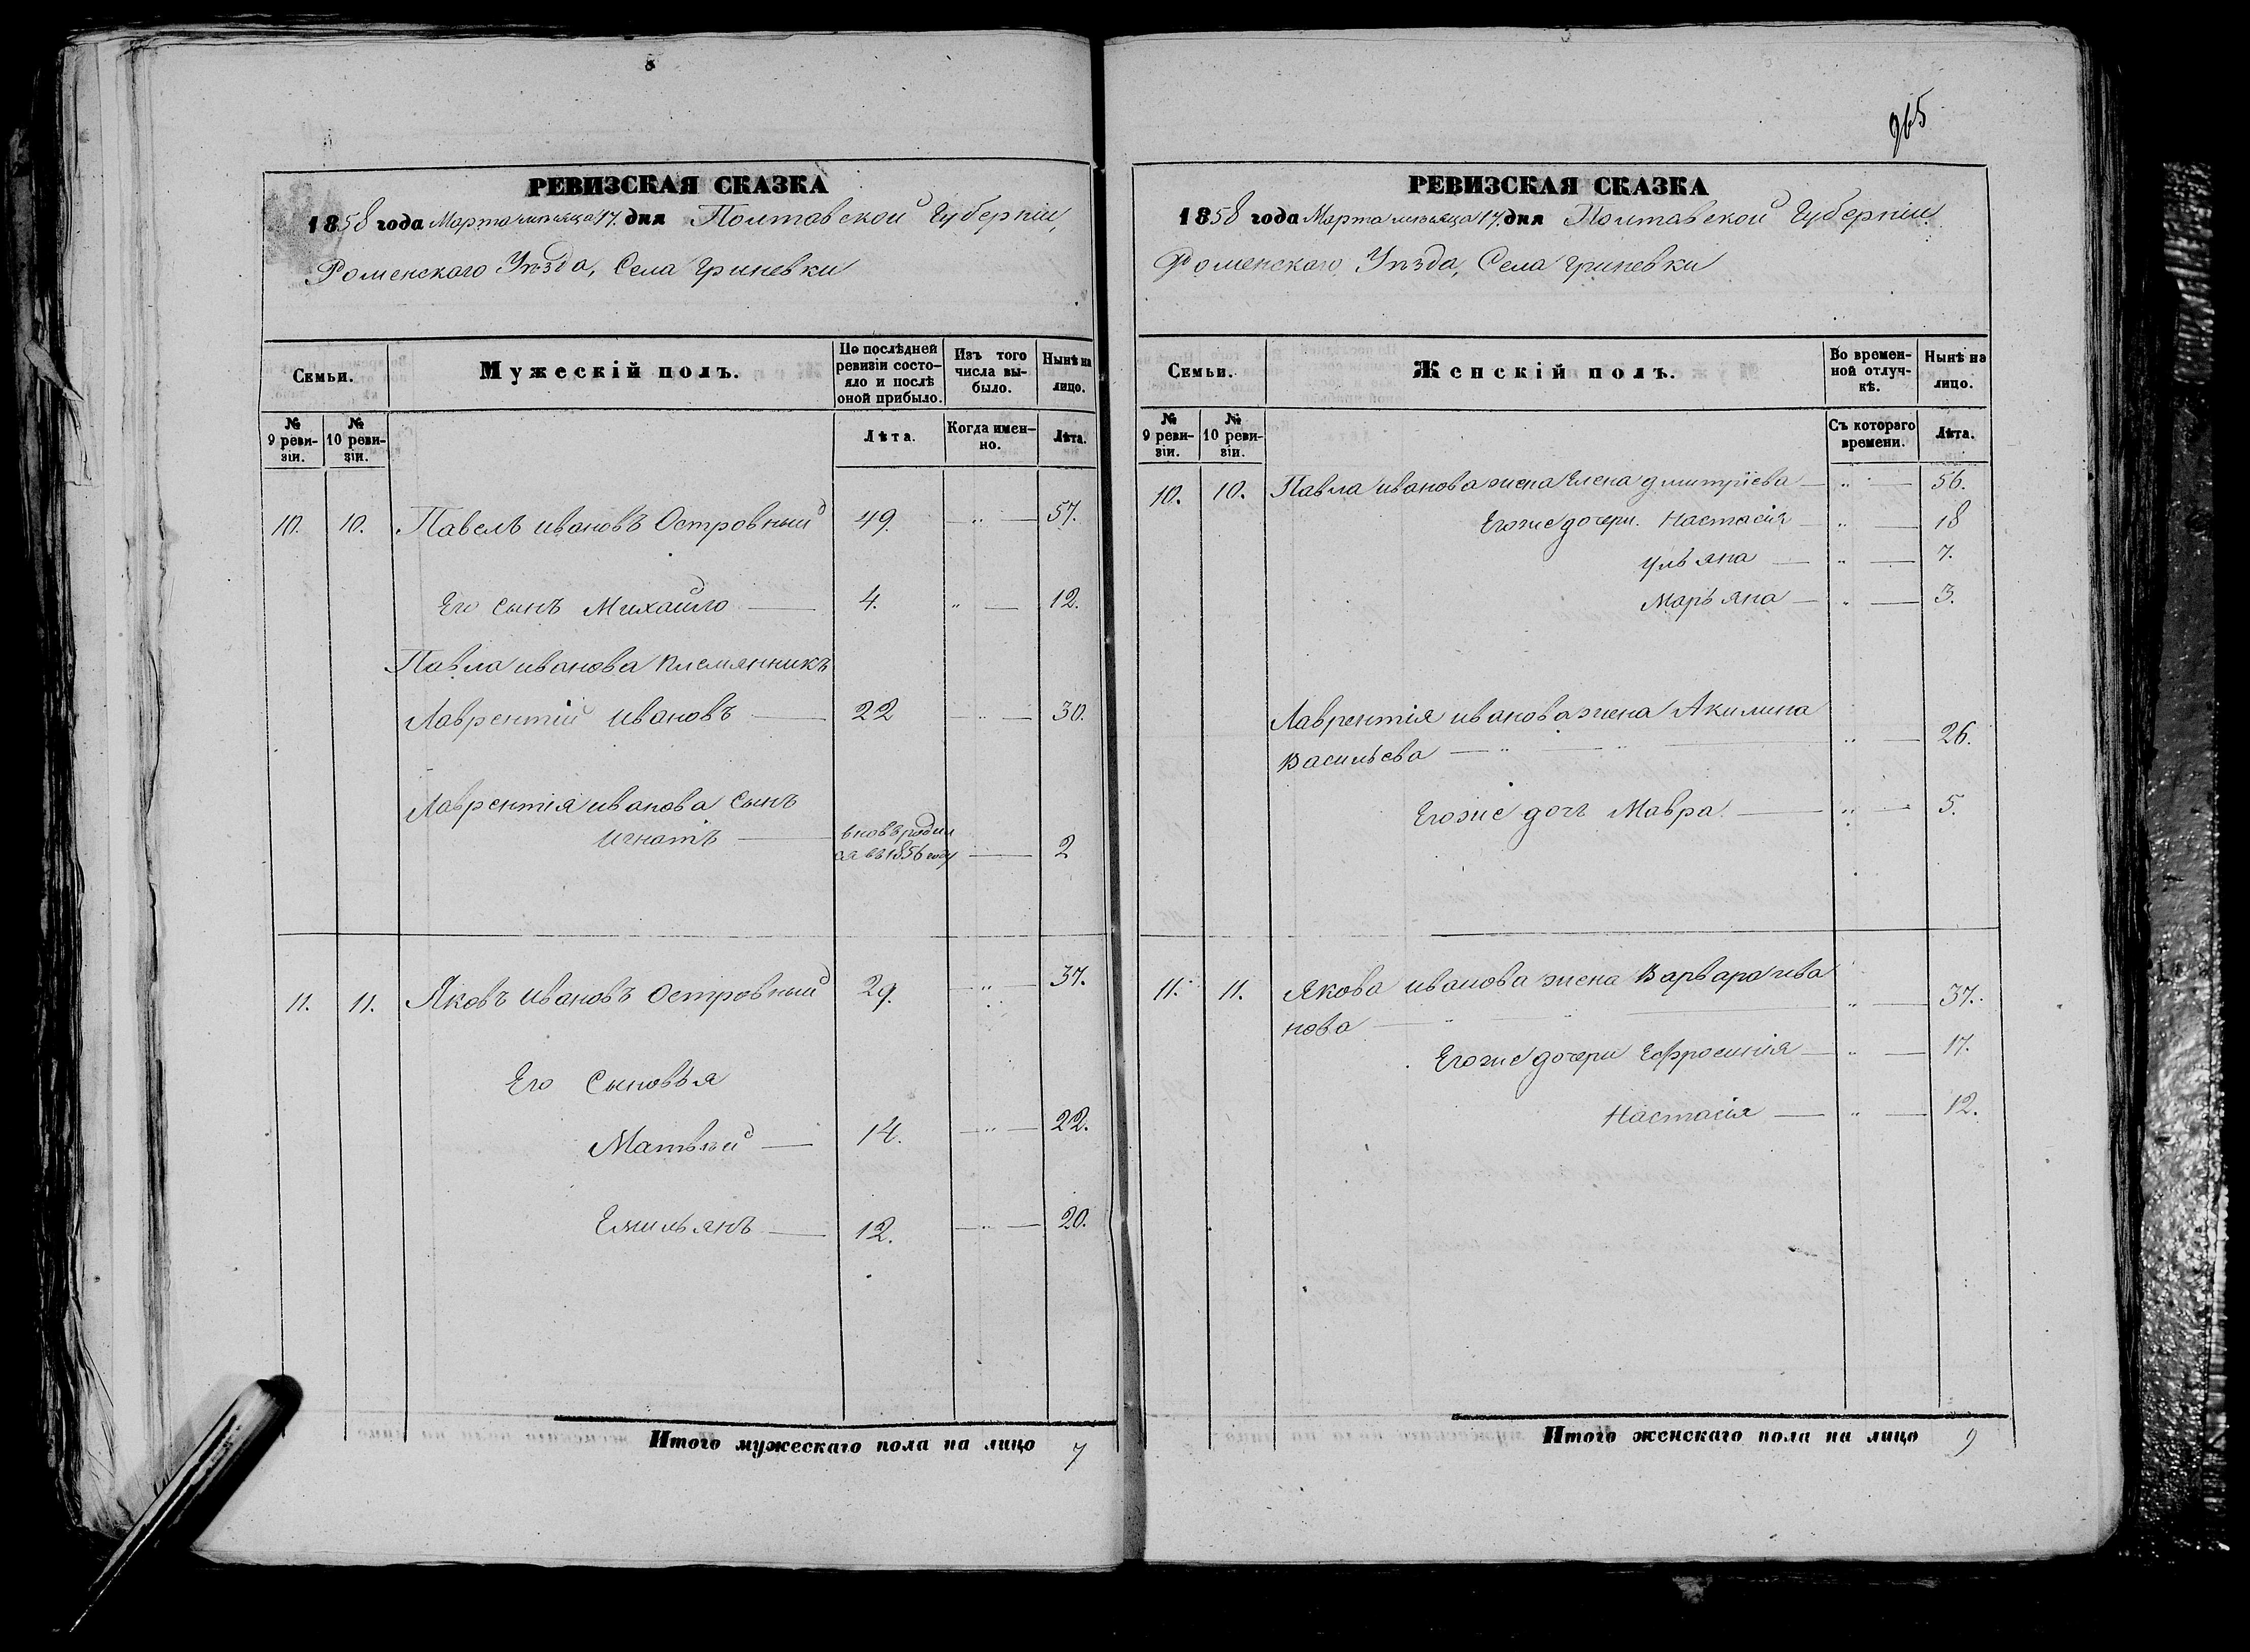 8
РЕВИЗСКАЯ СКАЗКА
1858 года Марта мѣсяца 17. дня Полтавской Губерніи,
Роменскаго Уѣзда, Села Гриневки
Семьи.
Мужескій полъ.
По послѣдней ревизіи состояло и послѣ оной прибыло.
Изъ того числа выбыло.
Нынѣ на лицо.
№ 9 ревизіи.
№ 10 ревизіи.
Лѣта.
Когда именно.
Лѣта.
10. 10. Павелъ Ивановъ Островный 49. — „ — 57.
Его сынъ Михайло — 4. „ — 12.
Павла Иванова племянникъ
Лаврентій Ивановъ — 22 — „ — 30.
Лаврентія Иванова сынъ
Игнатъ — вновь родил
ся въ 1856 году — 2
11. 11. Яковъ Ивановъ Островный 29. — „ — 37.
Его Сыновья
Матвѣй — 14. — „ — 22.
Емильянъ — 12. — „ — 20.
Итого мужескаго пола на лицо 7
965
РЕВИЗСКАЯ СКАЗКА
1858 года Марта мѣсяца 17. дня Полтавской Губерніи
Роменскаго Уѣзда, Села Гриневки
Семьи.
Женскій полъ.
Во временной отлучкѣ.
Нынѣ на лицо.
№ 9 ревизіи.
№ 10 ревизіи.
Съ котораго времени.
Лѣта.
10. 10. Павла Иванова жена Елена Дмитріева — „ — 56.
Егоже дочери. Настасія — „ — 18
Ульяна — „ — 7.
Марьяна — „ — 3.
Лаврентія Иванова жена Акилина
Васильева — „ — „ — „ — 26.
Егоже дочь Мавра — „ — 5.
11. 11. Якова Иванова жена Варвара Ива
нова — „ — „ — „ — 37.
Егоже дочери Ефросинія — „ — 17.
Настасія — „ — 12.
Итого женскаго пола на лицо 9